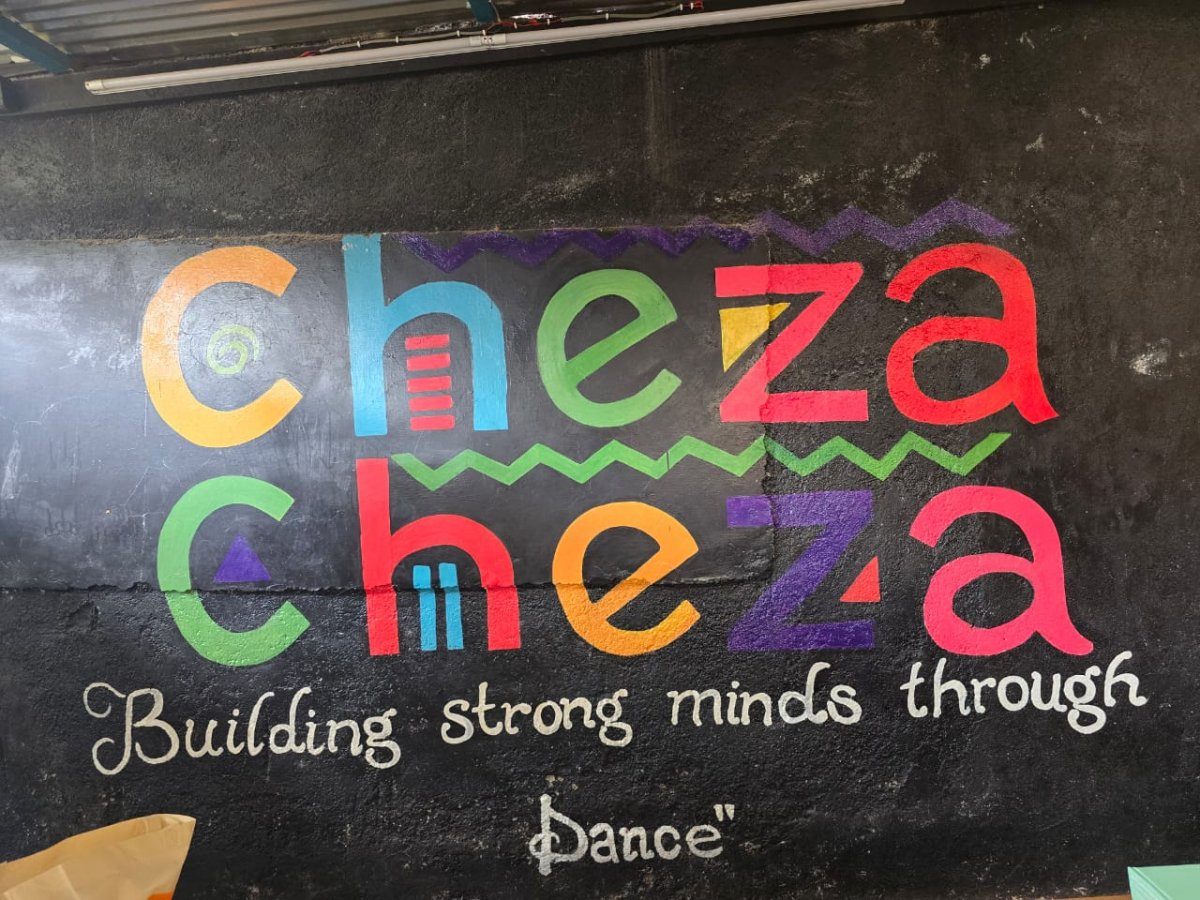 cheza
cheza
Building strong minds through
Dance"